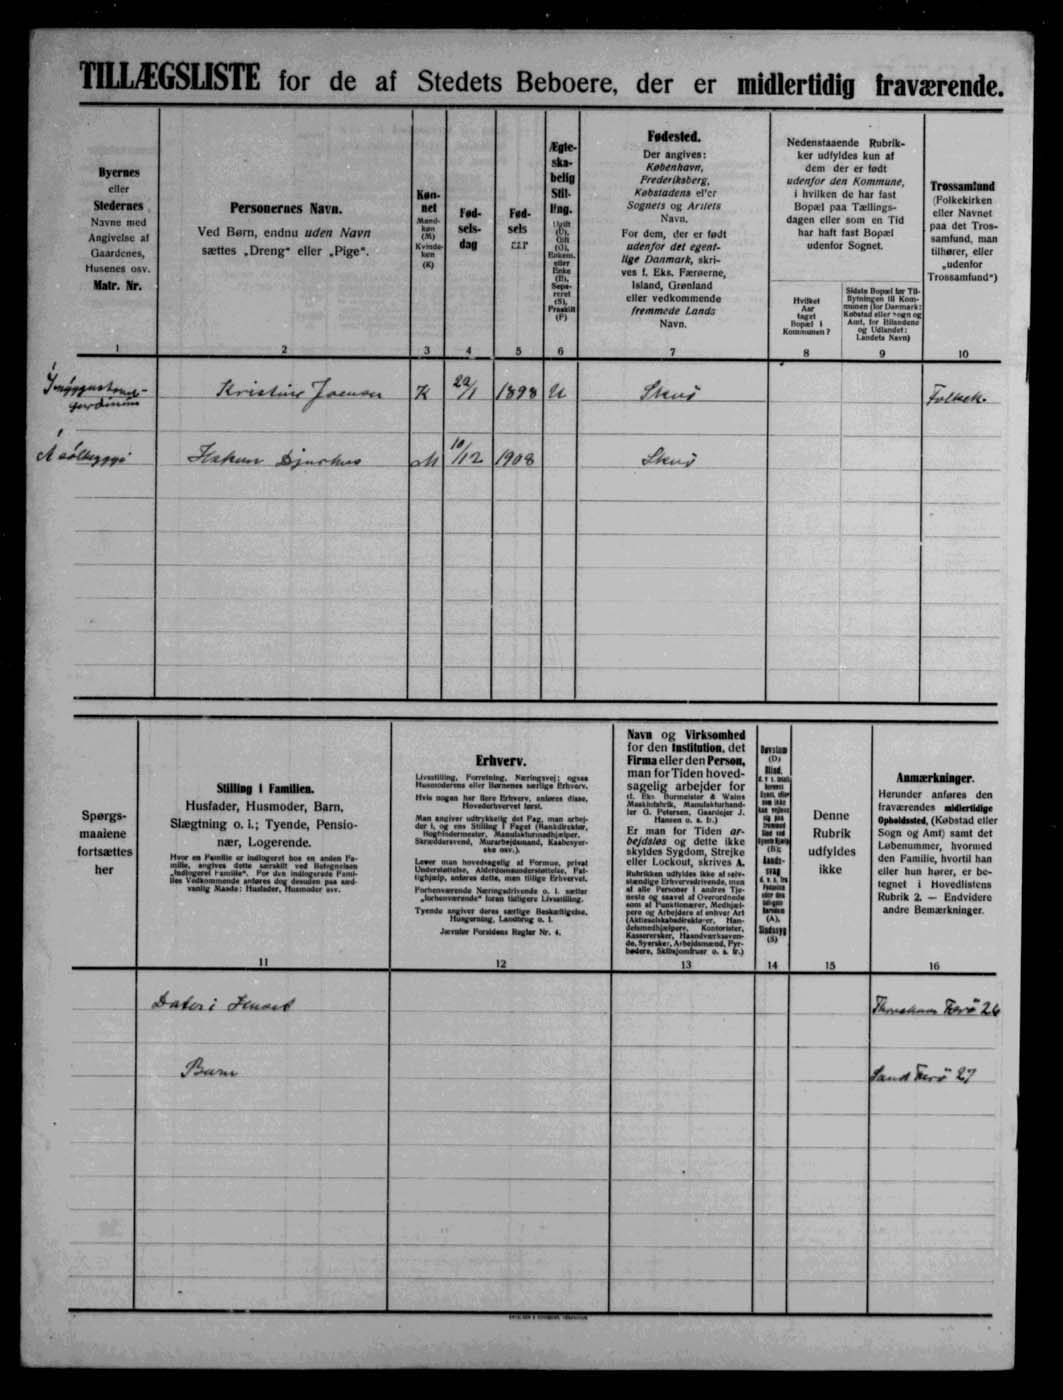 TILLÆGSLISTE for de af Stedets Beboere, der er midlertidig fraværende.
Byernes
eller
Stedernes
Navne med
Angivelse af
Gaardenes,
Husenes osv.
Matr. Nr.
1
Personernes Navn.
Ved Børn, endnu uden Navn
sættes „Dreng“ eller „Pige“.
2
Køn-
net
Mand-
køn
(M)
Kvinde-
køn
(K)
3
Fød-
sels-
dag
4
Fød-
sels
5
Ægte-
ska-
belig
Stil-
ling.
Ugift
(U),
Gift
(G),
Enkem.
eller
Enke
(E),
Sepa-
reret
(S),
Fraskilt
(F)
6
Fødested.
Der angives:
København,
Frederiksberg,
Købstadens eller
Sognets og Amtets
Navn.
For dem, der er født
udenfor det egent-
lige Danmark, skri-
ves f. Eks. Færøerne,
Island, Grønland
eller vedkommende
fremmede Lands
Navn.
7
Nedenstaaende Rubrik-
ker udfyldes kun af
dem der er født
udenfor den Kommune,
i hvilken de har fast
Bopæl paa Tællings-
dagen eller som en Tid
har haft fast Bopæl
udenfor Sognet.
Hvilket
Aar
taget
Bopæl i
Kommunen?
8
Sidste Bopæl før Til-
flytningen til Kom-
munen (for Danmark:
Købstad eller Sogn og
Amt, for Bilandene
og Udlandet:
Landets Navn)
9
Trossamfund
(Folkekirken
eller Navnet
paa det Tros-
samfund, man
tilhører, eller
„udenfor
Trossamfund“)
10
Kristine Joensen K 29/1 1898 U Skuø Folkek.
Hakun Djurhus M 10/12 1908 Skuø
Spørgs-
maalene
fortsættes
her
Stilling i Familien.
Husfader, Husmoder, Barn,
Slægtning o. l.; Tyende, Pensio-
nær, Logerende.
Hvor en Familie er indlogeret hos en anden Fa-
milie, angives dette særskilt ved Betegnelsen
„Indlogeret Familie“. For den indlogerede Fami-
lies Vedkommende anføres dog desuden paa sæd-
vanlig Maade: Husfader, Husmoder osv.
11
Erhverv.
Livsstilling, Forretning, Næringsvej; ogsaa
Husmoderens eller Børnenes særlige Erhverv.
Hvis nogen har flere Erhverv, anføres disse,
Hovederhvervet først.
Man angiver udtrykkelig det Fag, man arbej-
der i, og ens Stilling i Faget (Bankdirektør,
Bogbindermester, Manufakturmedhjælper,
Skræddersvend, Murarbejdsmand, Kaabesyer-
ske osv.).
Lever man hovedsagelig af Formue, privat
Understøttelse, Alderdomsunderstøttelse, Fat-
tighjælp, anføres dette, men tillige Erhvervet.
Forhenværende Næringsdrivende o. l. sætter
„forhenværende“ foran tidligere Livsstilling.
Tyende angiver deres særlige Beskæftigelse,
Husgerning, Landbrug o. l.
Jævnfør Forsidens Regler Nr. 4.
12
Navn og Virksomhed
for den Institution, det
Firma eller den Person,
man for Tiden hoved-
sagelig arbejder for
(f. Eks. Burmeister & Wains
Maskinfabrik, Manufakturhand-
ler G. Petersen, Gaardejer J.
Hansen o. s. fr.)
Er man for Tiden ar-
bejdsløs og dette ikke
skyldes Sygdom, Strejke
eller Lockout, skrives A.
Rubrikken udfyldes ikke af selv-
stændige Erhvervsdrivende, men
af alle Personer i andres Tje-
neste og saavel af Overordnede
som af Funktionærer, Medhjæl-
pere og Arbejdere af enhver Art
(Aktieselskabsdirektører, Han-
delsmedhjælpere, Kontorister,
Kasserersker, Haandværkssven-
de, Syersker, Arbejdsmænd, Fyr-
bødere, Skibsjomfruer o. s. fr.)
13
Døvstum
(D)
Blind,
(B);
Aands-
svag
(A),
Sindssyg
(S)
14
Denne
Rubrik
udfyldes
ikke
15
Anmærkninger.
Herunder anføres den
fraværendes midlertidige
Opholdssted, (Købstad eller
Sogn og Amt) samt det
Løbenummer, hvormed
den Familie, hvortil han
eller hun hører, er be-
tegnet i Hovedlistens
Rubrik 2. — Endvidere
andre Bemærkninger.
16
Datter i Huset Thorshavn Færø 26
Barn Sand Færø 27